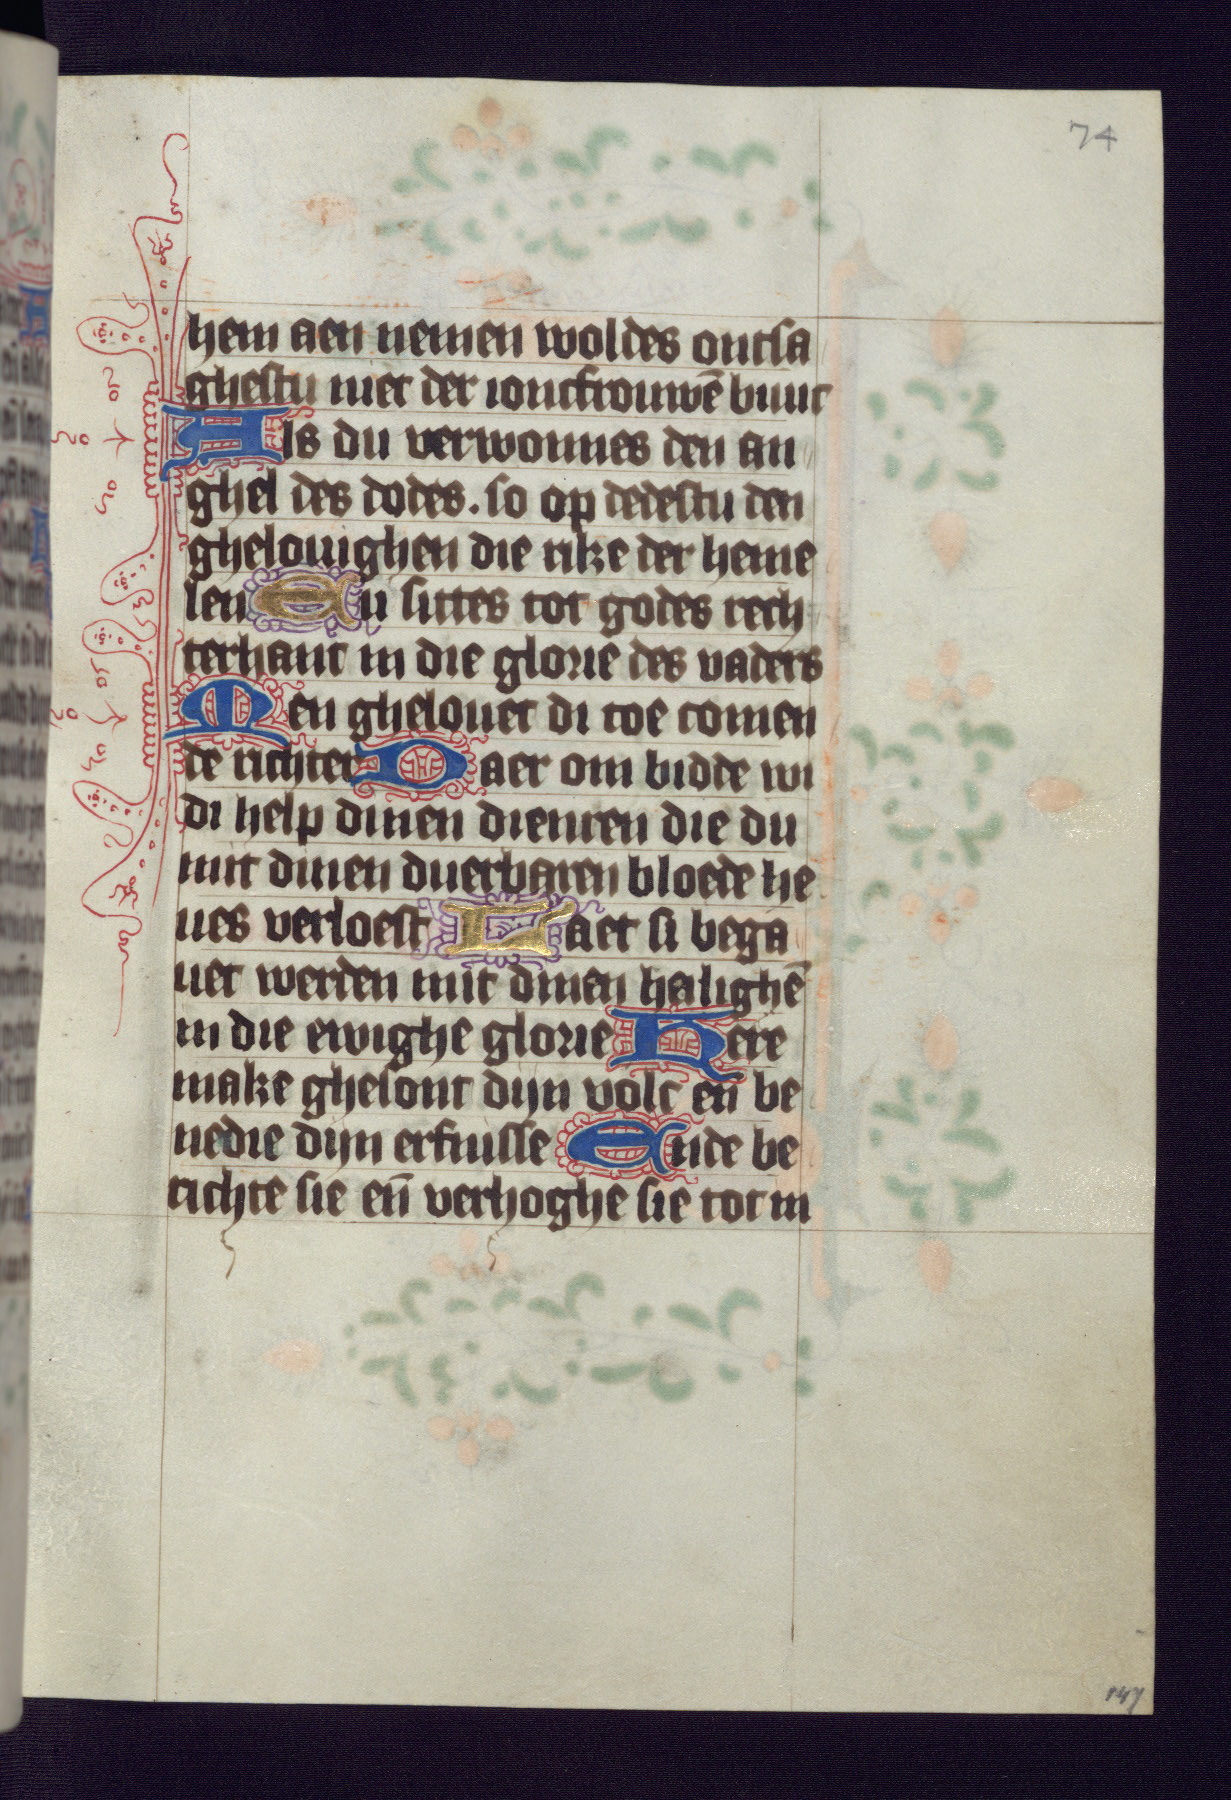 74
hem aen nemen woldes ontsa
ghestu niet der ioncfrouwē buuc
Als du verwonnes den an
ghel des dodes. so op dedestu den
ghelouighen die rike der heme
len Du sittes tot godes rech
terhant in die glorie des vaders
Men ghelouet di toe comen
de richter Daer om bidde wi
di help dinen dienren die du
mit dinen duerbaren bloede he
ues verloest Laet si bega
uet werden mit dinen halighē
in die ewighe glorie Here
make ghesont dijn volc eñ be
nedie dijn erfnisse Ende be
richte sie eñ verhoghe sie tot in